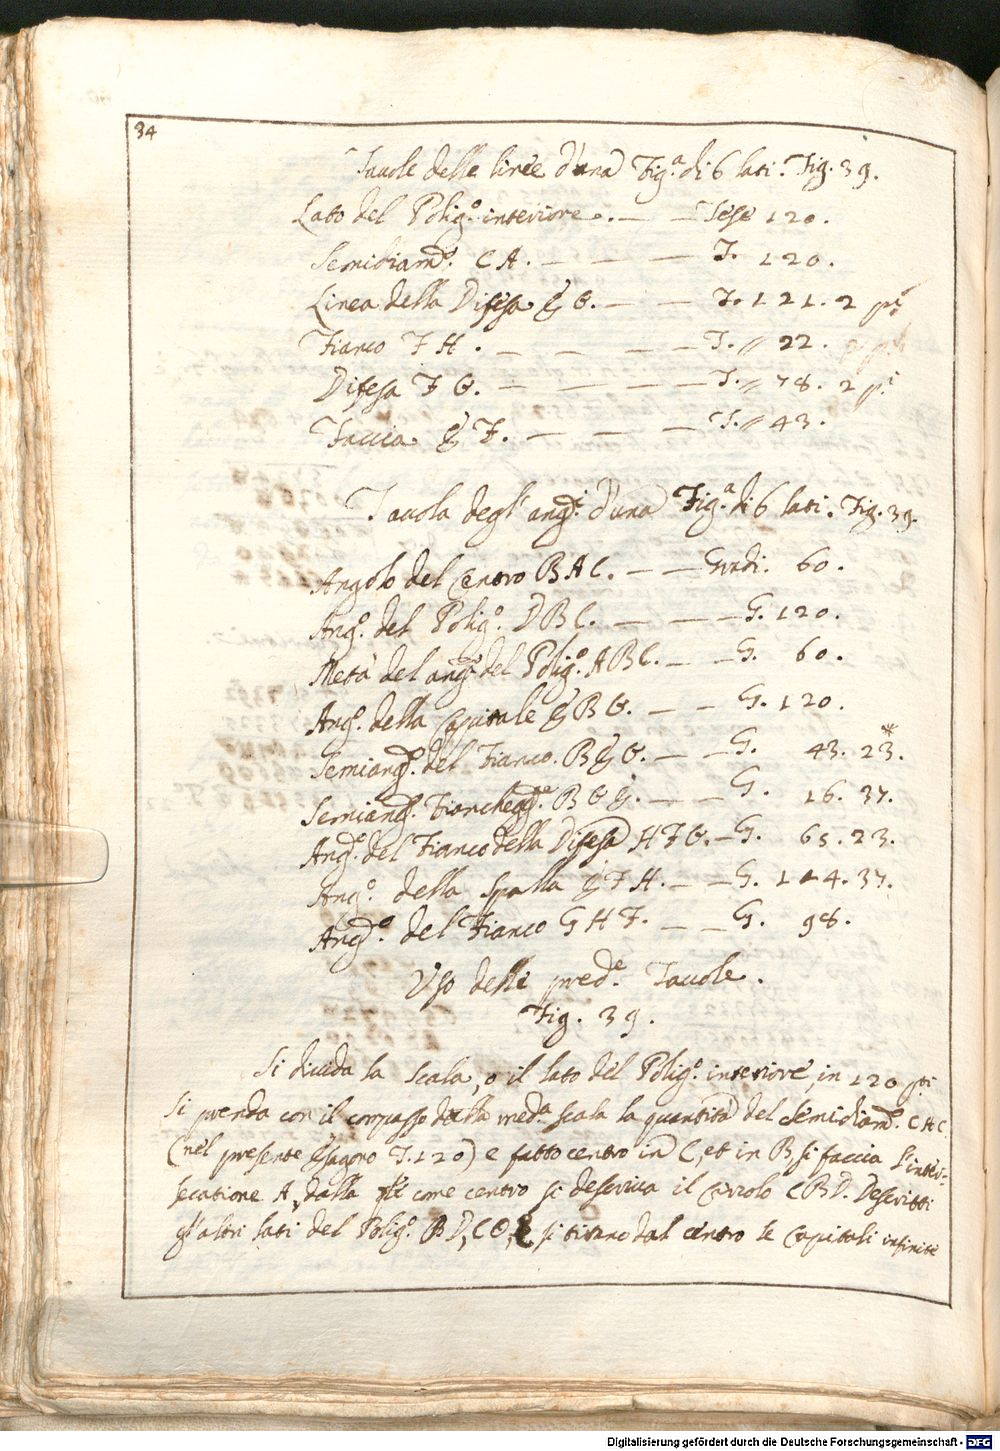 34
Tauole delle linee d'una Fig.ª di 6 lati. Fig. 39.
Lato del Polig.º interiore. — — Tese 120.
Semidiam.º CA. — — — T. 120.
Linea della Difesa EG. — — T. 121. 2 pi
Fianco FH. — — — T. 22.
Difesa FG. — — — T. 78. 2 pi
Faccia EF. — — — T. 43.
Tauola degl' ang.i d'una Fig.ª di 6 lati. Fig. 39.
Angolo del Centro BAC. — — Gradi. 60.
Ang.º del Polig.º DBC. — — — G. 120.
Metà del ang.º del Polig.º ABC. — — G. 60.
Ang.º della Capitale EBG. — — G. 120.
Semiang.º del Fianco. BEG. — — G. 43. 23.*
Semiang.º Fiancheg.te BGE. — — G. 16. 37.
Ang.º del Fianco della Difesa HFG. — G. 65. 23.
Ang.º della Spalla EFH. — — G. 114. 37.
Ang.º del Fianco GHF. — — G. 98.
Uso delle pred.e Tauole.
Fig. 39.
Si diuida la scala, o il lato del Polig.º interiore, in 120 pti
Si prenda con il compasso dalla med.ª scala la quantità del Semidiam.º
(nel presente Esagono T. 120) e fatto centro in C, et in B, si faccia l'inter-
secatione A, dalla come centro si descriua il Circolo CBD. Descritti
gl'altri lati del Polig.º BD, CO, si tirano dal centro le Capitali infinite
Digitalisierung gefördert durch die Deutsche Forschungsgemeinschaft - DFG